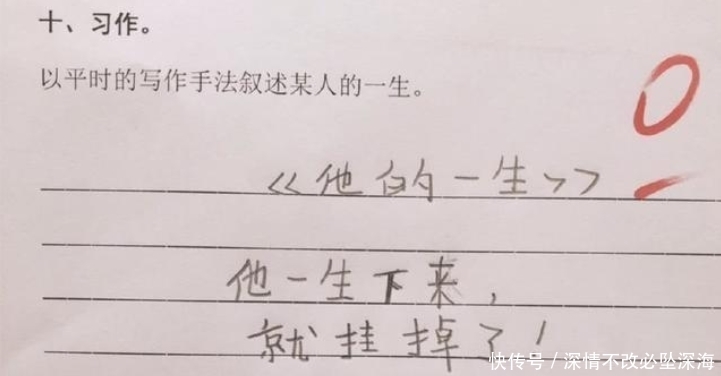 十、习作。
以平时的写作手法叙述某人的一生。
0
《他的一生》
他一生下来，
就挂掉了！
快传号／深情不改必坠深海